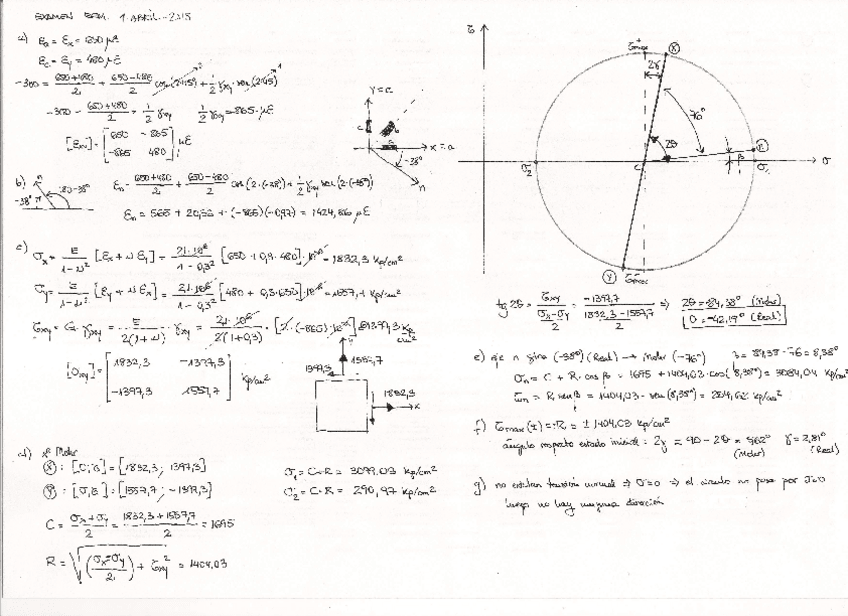 EXAMEN 1 ABRIL - 2015
a) εa = εx = 650 με
εc = εy = 480 με
-300 = (650+480)/2 + (650-480)/2 cos(2·45) + 1/2 γxy · sen(2·45)
-300 - (650+480)/2 = 1/2 γxy    1/2 γxy = -865 με
[εxy] = [650 -865
-865 480] με
y=c
c
b
a
x=a
-38°
n
b)
n
180-38°
-38°
εn = (650+480)/2 + (650-480)/2 cos(2·(-38)) + 1/2 γxy sen(2·(-38°))
εn = 565 + 20,56 + (-865)(-0,97) = 1424,86 με
c) σx = E/(1-ν²) [εx + ν εy] = 2,1·10⁶/(1-0,3²) [650 + 0,3·480]·10⁻⁶ = 1832,3 Kp/cm²
σy = E/(1-ν²) [εy + ν εx] = 2,1·10⁶/(1-0,3²) [480 + 0,3·650]·10⁻⁶ = 1557,7 Kp/cm²
τxy = G·γxy = E/(2(1+ν)) · γxy = 2,1·10⁶/(2(1+0,3)) · [2·(-865)·10⁻⁶] = -1397,3 Kp/cm²
[σxy] = [1832,3 -1397,3
-1397,3 1557,7] Kp/cm²
y
1557,7
1397,3
1832,3
x
d) Mohr
(X) : [σ,τ] = [1832,3 ; 1397,3]
(Y) : [σ,τ] = [1557,7 ; -1397,3]
C = (σx+σy)/2 = (1832,3+1557,7)/2 = 1695
R = √((σx-σy)/2)² + τxy² = 1404,03
σ1 = C+R = 3099,03 Kp/cm²
σ2 = C-R = 290,97 Kp/cm²
τ
τ⁺max
X
2γ
76°
2θ
n
β
σ2
C
σ1
σ
Y
τ⁻max
tg 2θ = τxy/((σx-σy)/2) = -1397,7/((1832,3-1557,7)/2) ⇒ 2θ = -84,38° (Mohr)
θ = -42,19° (Real)
e) eje n gira (-38°) (Real) → Mohr (-76°)    β = 84,38-76 = 8,38°
σn = C + R·cos β = 1695 + 1404,03·cos(8,38°) = 3084,04 Kp/cm²
τn = R sen β = 1404,03 · sen(8,38°) = 204,62 Kp/cm²
f) τmax(±) = R = ± 1404,03 Kp/cm²
ángulo respecto estado inicial: 2γ = 90 - 2θ = 5,62° (Mohr)    γ = 2,81° (Real)
g) no existan tensión normal ⇒ σ=0 ⇒ el círculo no pasa por σ=0
luego no hay ninguna dirección